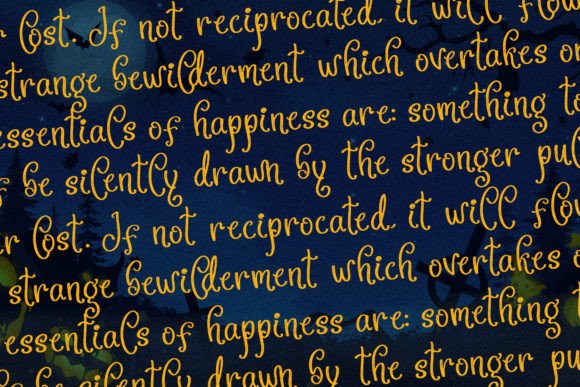 er lost. If not reciprocated, it will flow
strange bewilderment which overtakes on
essentials of happiness are: something to
f be silently drawn by the stronger pul
er lost. If not reciprocated, it will flow
strange bewilderment which overtakes o
essentials of happiness are: something t
be silently drawn by the stronger pul